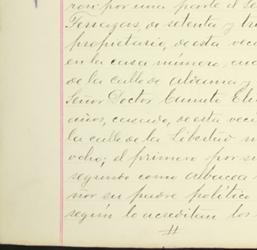 ron por una parte el Se
Terrazas, de setenta y tre
propietario, de esta veci
en la casa número, cua
de la calle de Aldama y
Señor Doctor Canuto El
años, casado, de esta veci
la calle de la Libertad n
ocho; el primero por si
segundo como albacea
nor su padre político
según lo acreditan los